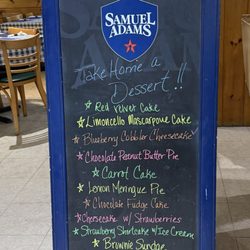 SAMUEL
ADAMS
Take Home a
Dessert!!
Red Velvet Cake
Limoncello Mascarpone Cake
Blueberry Cobbler Cheesecake
Chocolate Peanut Butter Pie
Carrot Cake
Lemon Meringue Pie
Chocolate Fudge Cake
Cheesecake w/ Strawberries
Strawberry Shortcake w/Ice Cream
Brownie Sundae